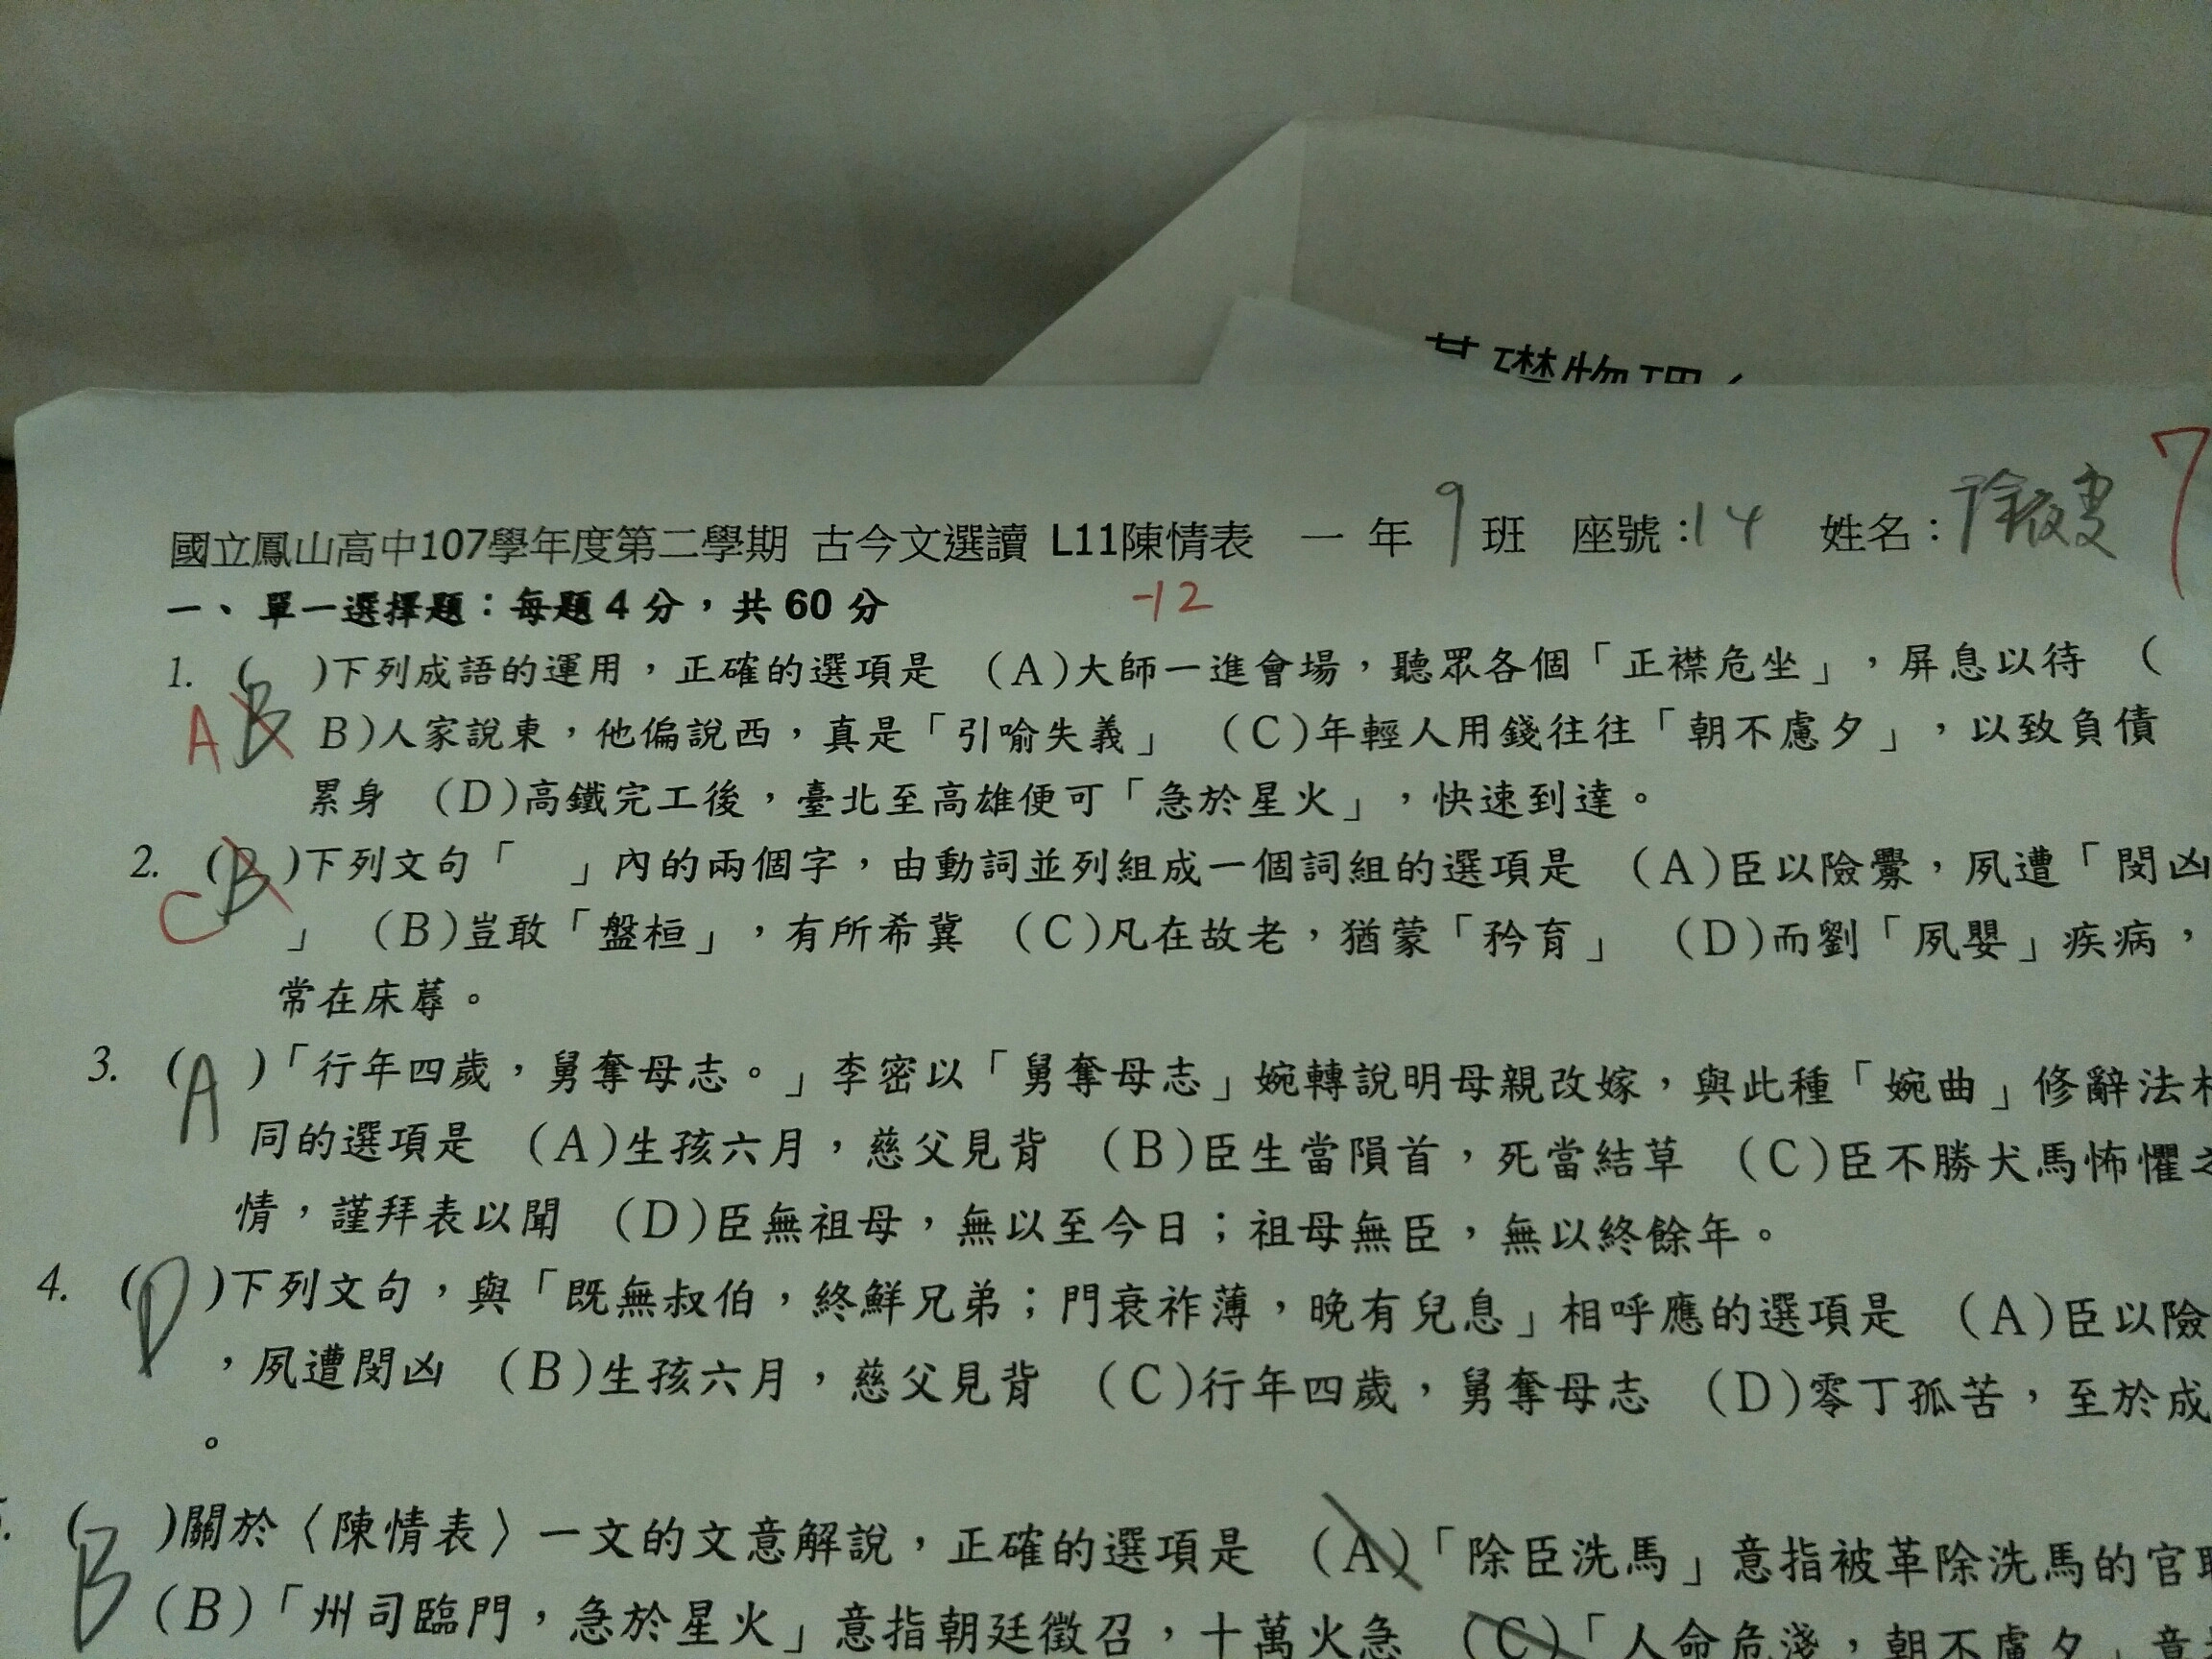 基礎物理
7
國立鳳山高中107學年度第二學期 古今文選讀 L11陳情表 一 年 9 班 座號:14 姓名：
一、單一選擇題：每題4分，共60分 -12
1. ( )下列成語的運用，正確的選項是 (A)大師一進會場，聽眾各個「正襟危坐」，屏息以待 (
A B B)人家說東，他偏說西，真是「引喻失義」 (C)年輕人用錢往往「朝不慮夕」，以致負債
累身 (D)高鐵完工後，臺北至高雄便可「急於星火」，快速到達。
2. (B)下列文句「 」內的兩個字，由動詞並列組成一個詞組的選項是 (A)臣以險釁，夙遭「閔凶
C 」 (B)豈敢「盤桓」，有所希冀 (C)凡在故老，猶蒙「矜育」 (D)而劉「夙嬰」疾病，
常在床蓐。
3. (A)「行年四歲，舅奪母志。」李密以「舅奪母志」婉轉說明母親改嫁，與此種「婉曲」修辭法相
同的選項是 (A)生孩六月，慈父見背 (B)臣生當隕首，死當結草 (C)臣不勝犬馬怖懼之
情，謹拜表以聞 (D)臣無祖母，無以至今日；祖母無臣，無以終餘年。
4. (D)下列文句，與「既無叔伯，終鮮兄弟；門衰祚薄，晚有兒息」相呼應的選項是 (A)臣以險
，夙遭閔凶 (B)生孩六月，慈父見背 (C)行年四歲，舅奪母志 (D)零丁孤苦，至於成
。
(B)關於〈陳情表〉一文的文意解說，正確的選項是 (A)「除臣洗馬」意指被革除洗馬的官職
(B)「州司臨門，急於星火」意指朝廷徵召，十萬火急 (C)「人命危淺，朝不慮夕」意指